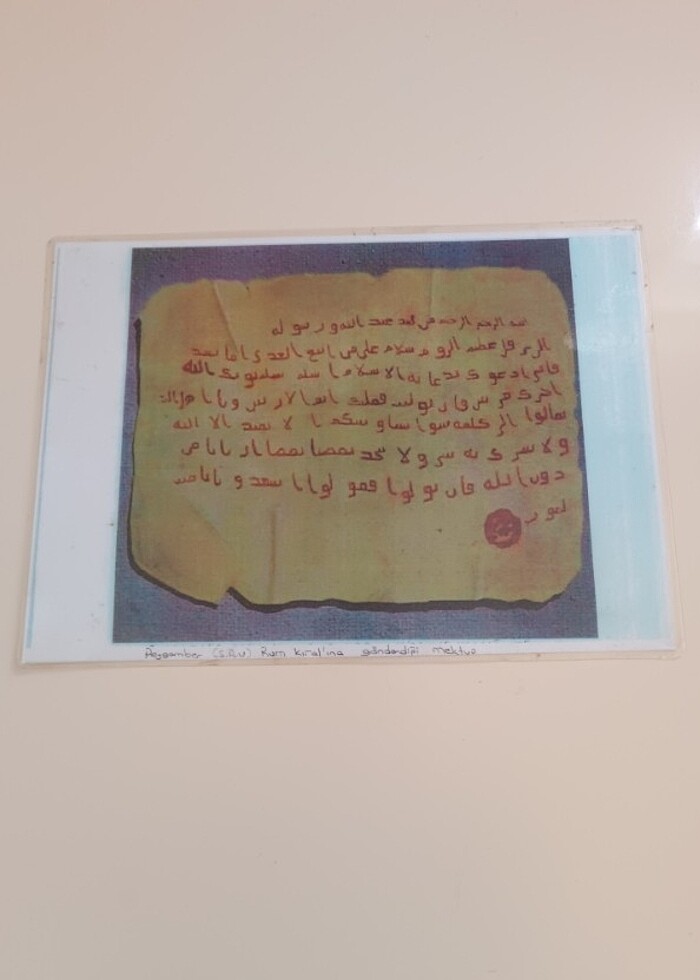 بسم الله الرحمن الرحيم من محمد عبد الله ور سو له
الى هر قل عظيم الرو م سلام على من اتبع الهدى اما بعد
فانى اد عو ك بد عا ية الا سلام ا سلم تسلم يو تك الله
اجرك مر تين فان تو ليت فعليك اثم الار يس و يا ا هل ا
تعالوا الى كلمة سوا بيننا و بينكم ا لا نعبد الا الله
و لا نشر ك به شى و لا يتخذ بعضنا بعضا ار با با من
دون ا لله فان تو لو ا فقو لو ا ا شهد و ا با نا مسـ
لمو ن
Peygamber (S.A.V) Rum kıral'ına gönderdiği mektup